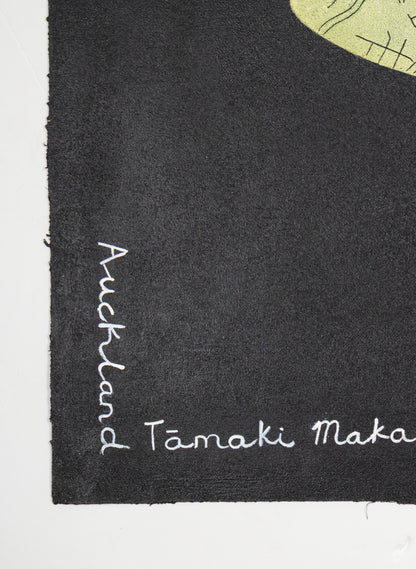 Auckland
Tāmaki Maka